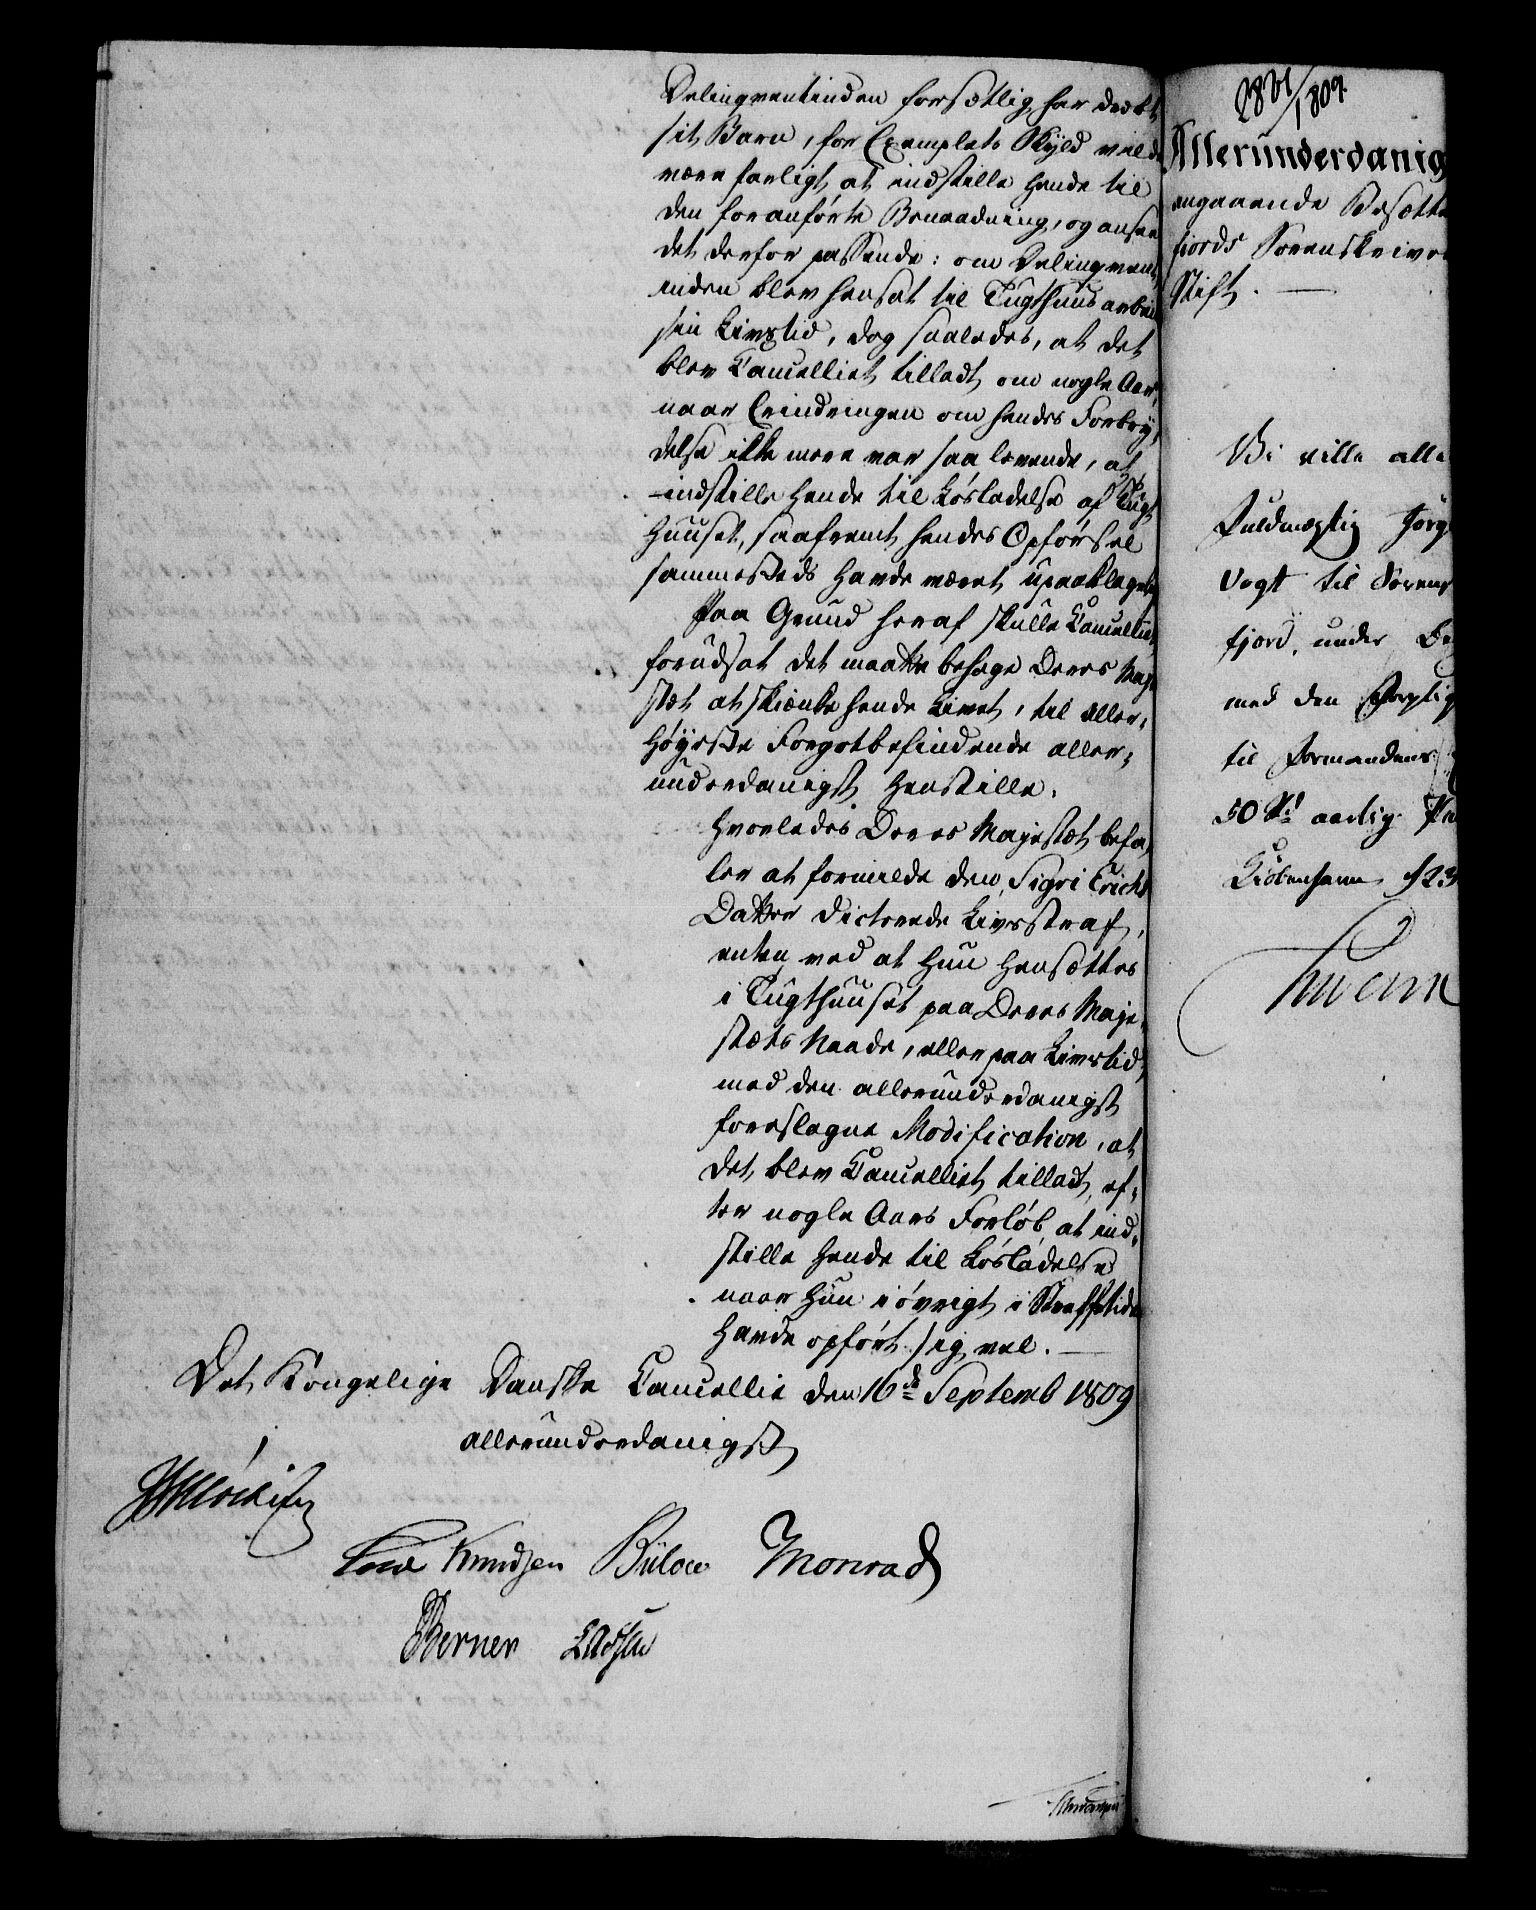 Delinqventinden forsætlig har dræbt
sit Barn, for Exemplets Skyld vilde
være farligt at indstille hende til
den foranførte Benaadning, og ansee
det derfor passende: om Delinqvent
inden blev hensat til Tugthuus arbeide
sin Livstid, dog saaledes, at det
blev Cancelliet tilladt om nogle Aar,
naar Erindringen om hendes Forbry-
delse ikke mere var saa levende, at
indstille hende til Løsladelse af Tugt
huuset, saafremt hendes Opførsel
sammesteds havde været upaaklagelig
Paa Grund heraf skulle Cancelliet,
forudsat det maatte behage Deres Maje
stæt at skienke hende Livet, til aller-
høyeste Forgotbefindende aller-
underdanigst henstille.
Hvorledes Deres Majestæt befa-
ler at formilde den Sigri Erichs
Datter dicterede Livsstraf,
enten ved at hun hensættes
i Tugthuuset paa Deres Maje-
stæts Naade, eller paa Livstid,
med den allerunderdanigst
foreslagne Modification, at
det blev Cancelliet tilladt, ef-
ter nogle Aars Forløb at ind-
stille hende til Løsladelse
naar hun i øvrigt i Straffetiden
havde opført sig vel.
Det Kongelige Danske Cancellie den 16de Septemb 1809
allerunderdanigst
Knudsen Bülow Monrad
Berner Lassen
2821/1809
Allerunderdanigs
angaaende Besætte
fiords Sorenskrive
Stift.
Vi ville alle
Fuldmægtig Jørg
Vogt til Sorens
fjord, under
med den Forplig
til Formandens
50 Rd aarlig
Kiøbenhavn d 23